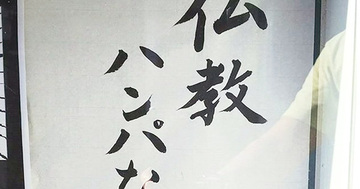 仏教
ハンパな